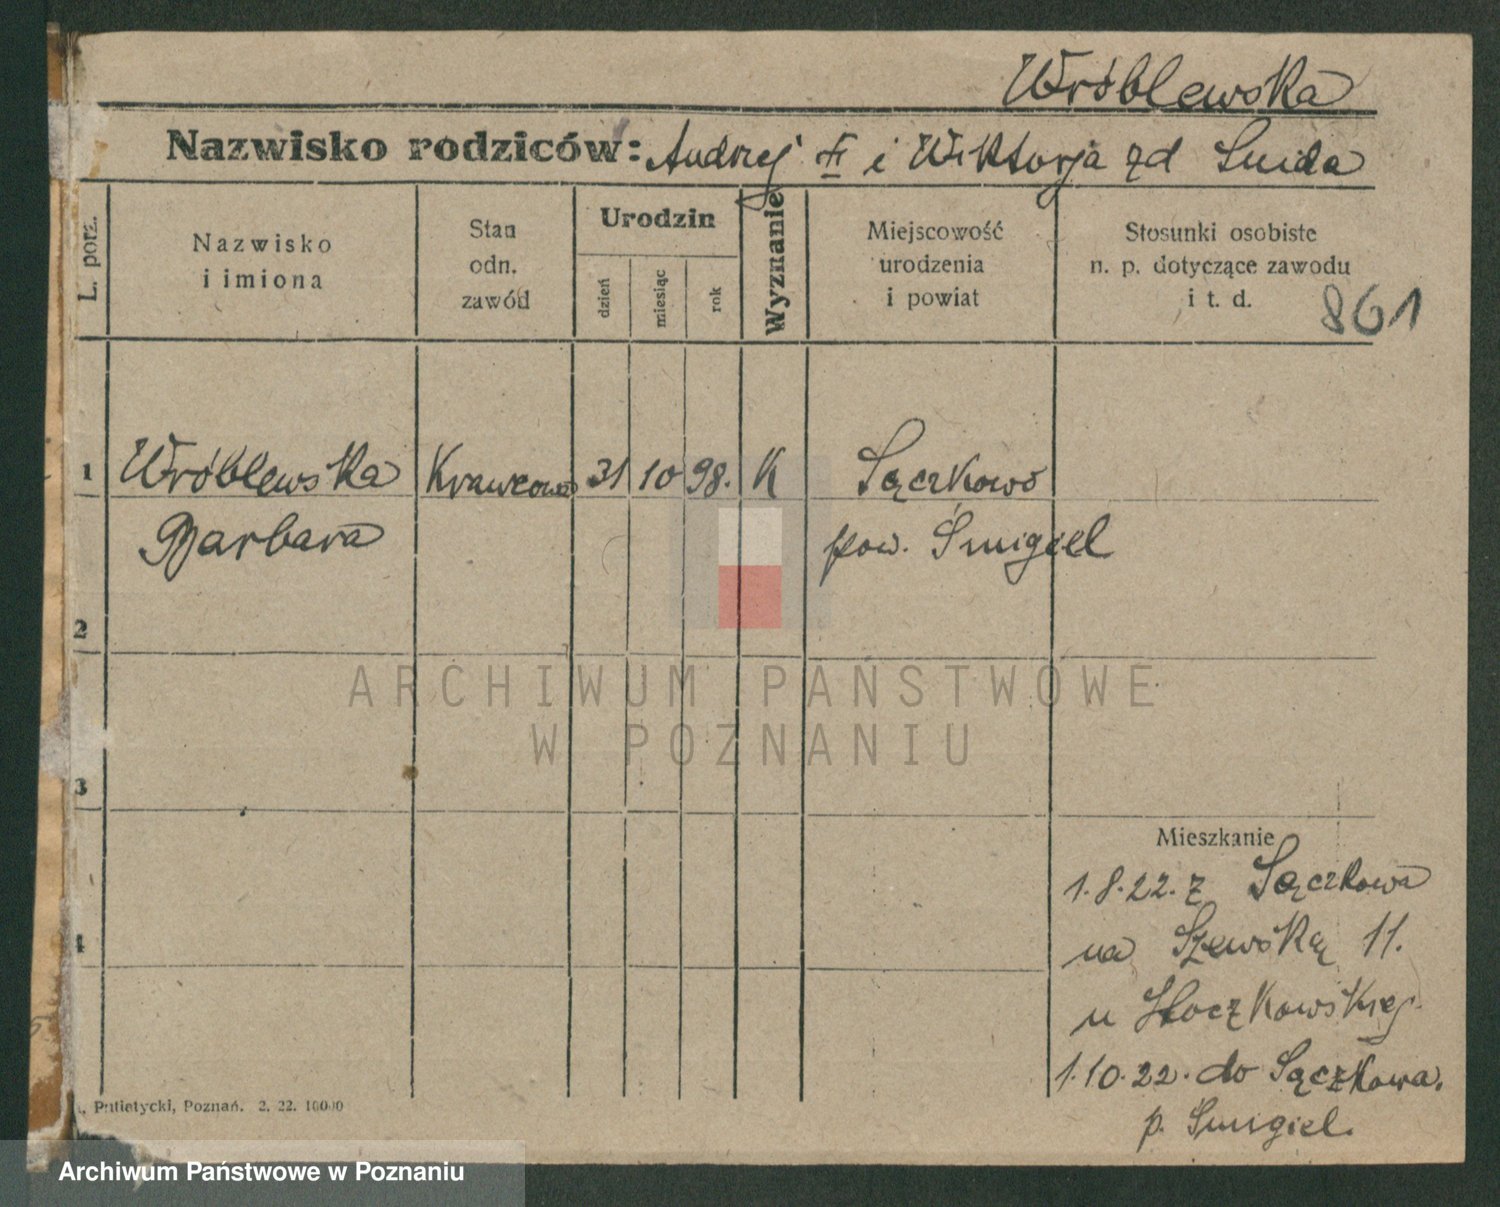 Wróblewska
Nazwisko rodziców: Andrzej i Wiktorja zd Snida
L. porz.
Nazwisko
i imiona
Stan
odn.
zawód
Urodzin
dzień
miesiąc
rok
Wyznanie
Miejscowość
urodzenia
i powiat
Stosunki osobiste
n. p. dotyczące zawodu
i t. d.
861
1 Wróblewska Krawcowa 31 10 98. K Sączkowo
Barbara pow. Śmigiel
2
3
4
ARCHIWUM PAŃSTWOWE
W POZNANIU
Mieszkanie
1.8.22. z Sączkowa
na Szewską 11.
u
1.10.22. do Sączkowa.
p. Śmigiel.
Putiatycki, Poznań. 2. 22. 10000
Archiwum Państwowe w Poznaniu